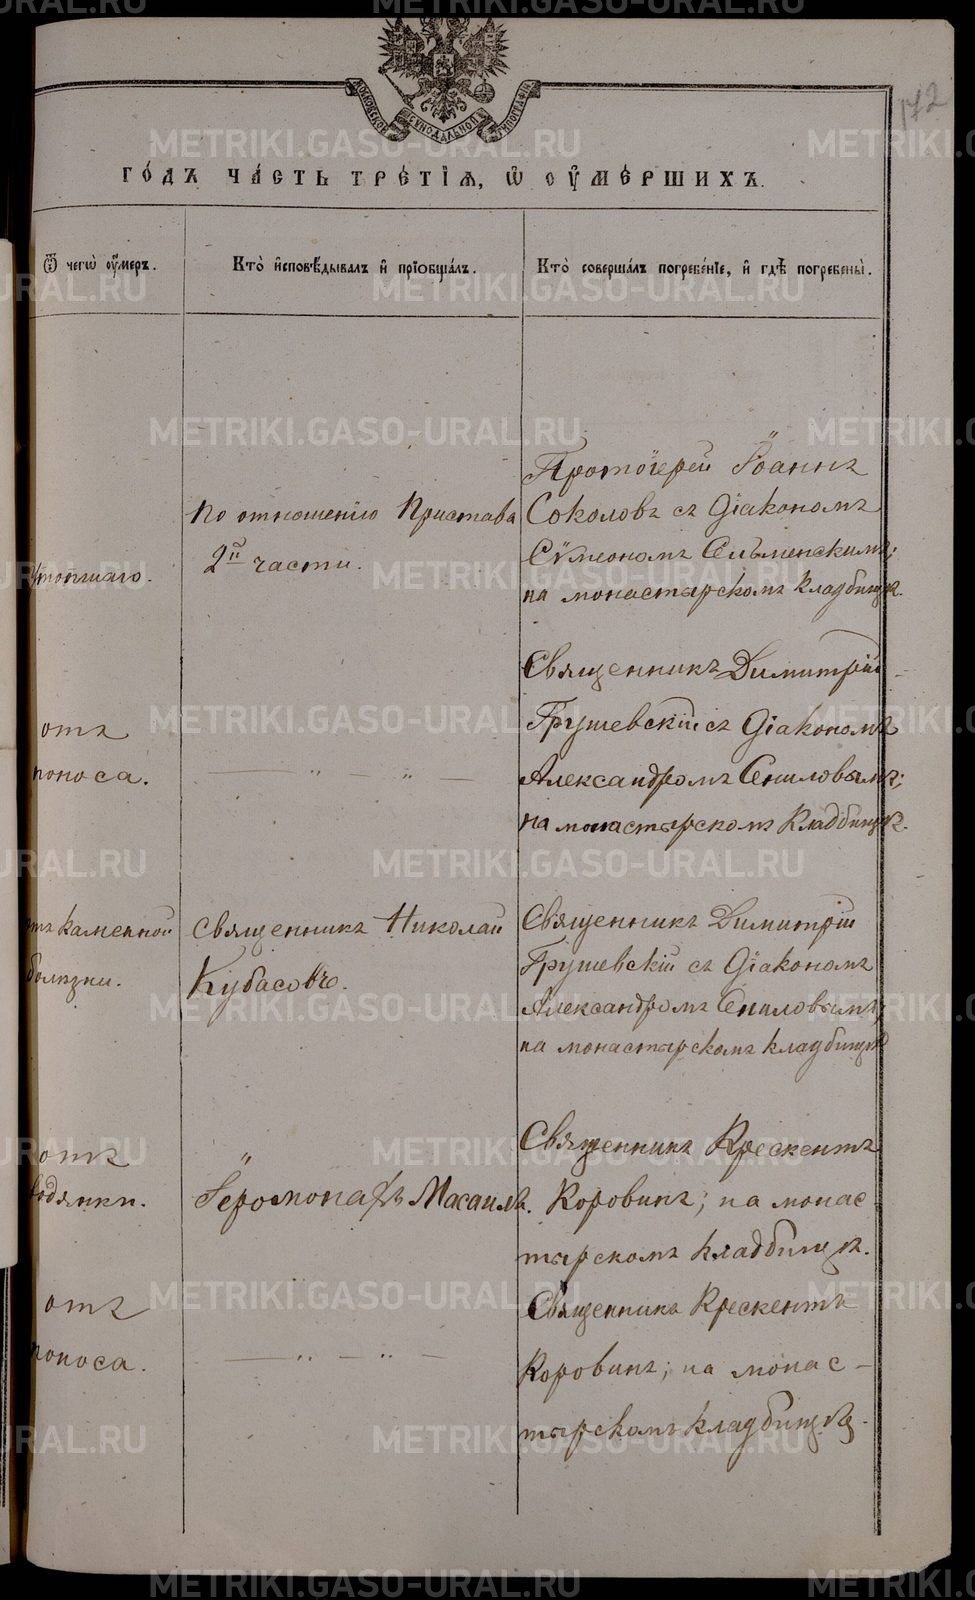 172
МОСКОВСКОЙ СѴНОДАЛЬНОЙ ТИПОГРАФІИ
ГО́ДЪ ЧА́СТЬ ТРЕ́ТІѦ, Ѡ҆ ОУ҆МЕ́РШИХЪ.
Ѿ чегѡ̀ оу҆́меръ.
Кто̀ и҆сповѣ́дывалъ и҆ прїѻбща́лъ.
Кто̀ соверша́лъ погребе́нїе, и҆ гдѣ̀ погребены̀.
Утопшаго.
По отношенію Пристава
2й части.
Протоіерей Іоаннъ
Соколовъ съ Діакономъ
Сѵмеономъ
на монастырскомъ кладбищѣ.
отъ
поноса.
— " — " —
Священникъ Димитрій
Грушевскій съ Діакономъ
Александромъ Сниловымъ;
на монастырскомъ кладбищѣ.
отъ каменной
болѣзни.
Священникъ Николай
Кубасовъ.
Священникъ Димитрій
Грушевскій съ Діакономъ
Александромъ Сниловымъ;
на монастырскомъ кладбищѣ
отъ
водянки.
Іеромонахъ Масаилъ.
Священникъ Крескентъ
Коровинъ; на монас
тырскомъ кладбищѣ.
отъ
поноса.
— " — " —
Священникъ Крескентъ
Коровинъ; на монас-
тырскомъ кладбищѣ.
METRIKI.GASO-URAL.RU